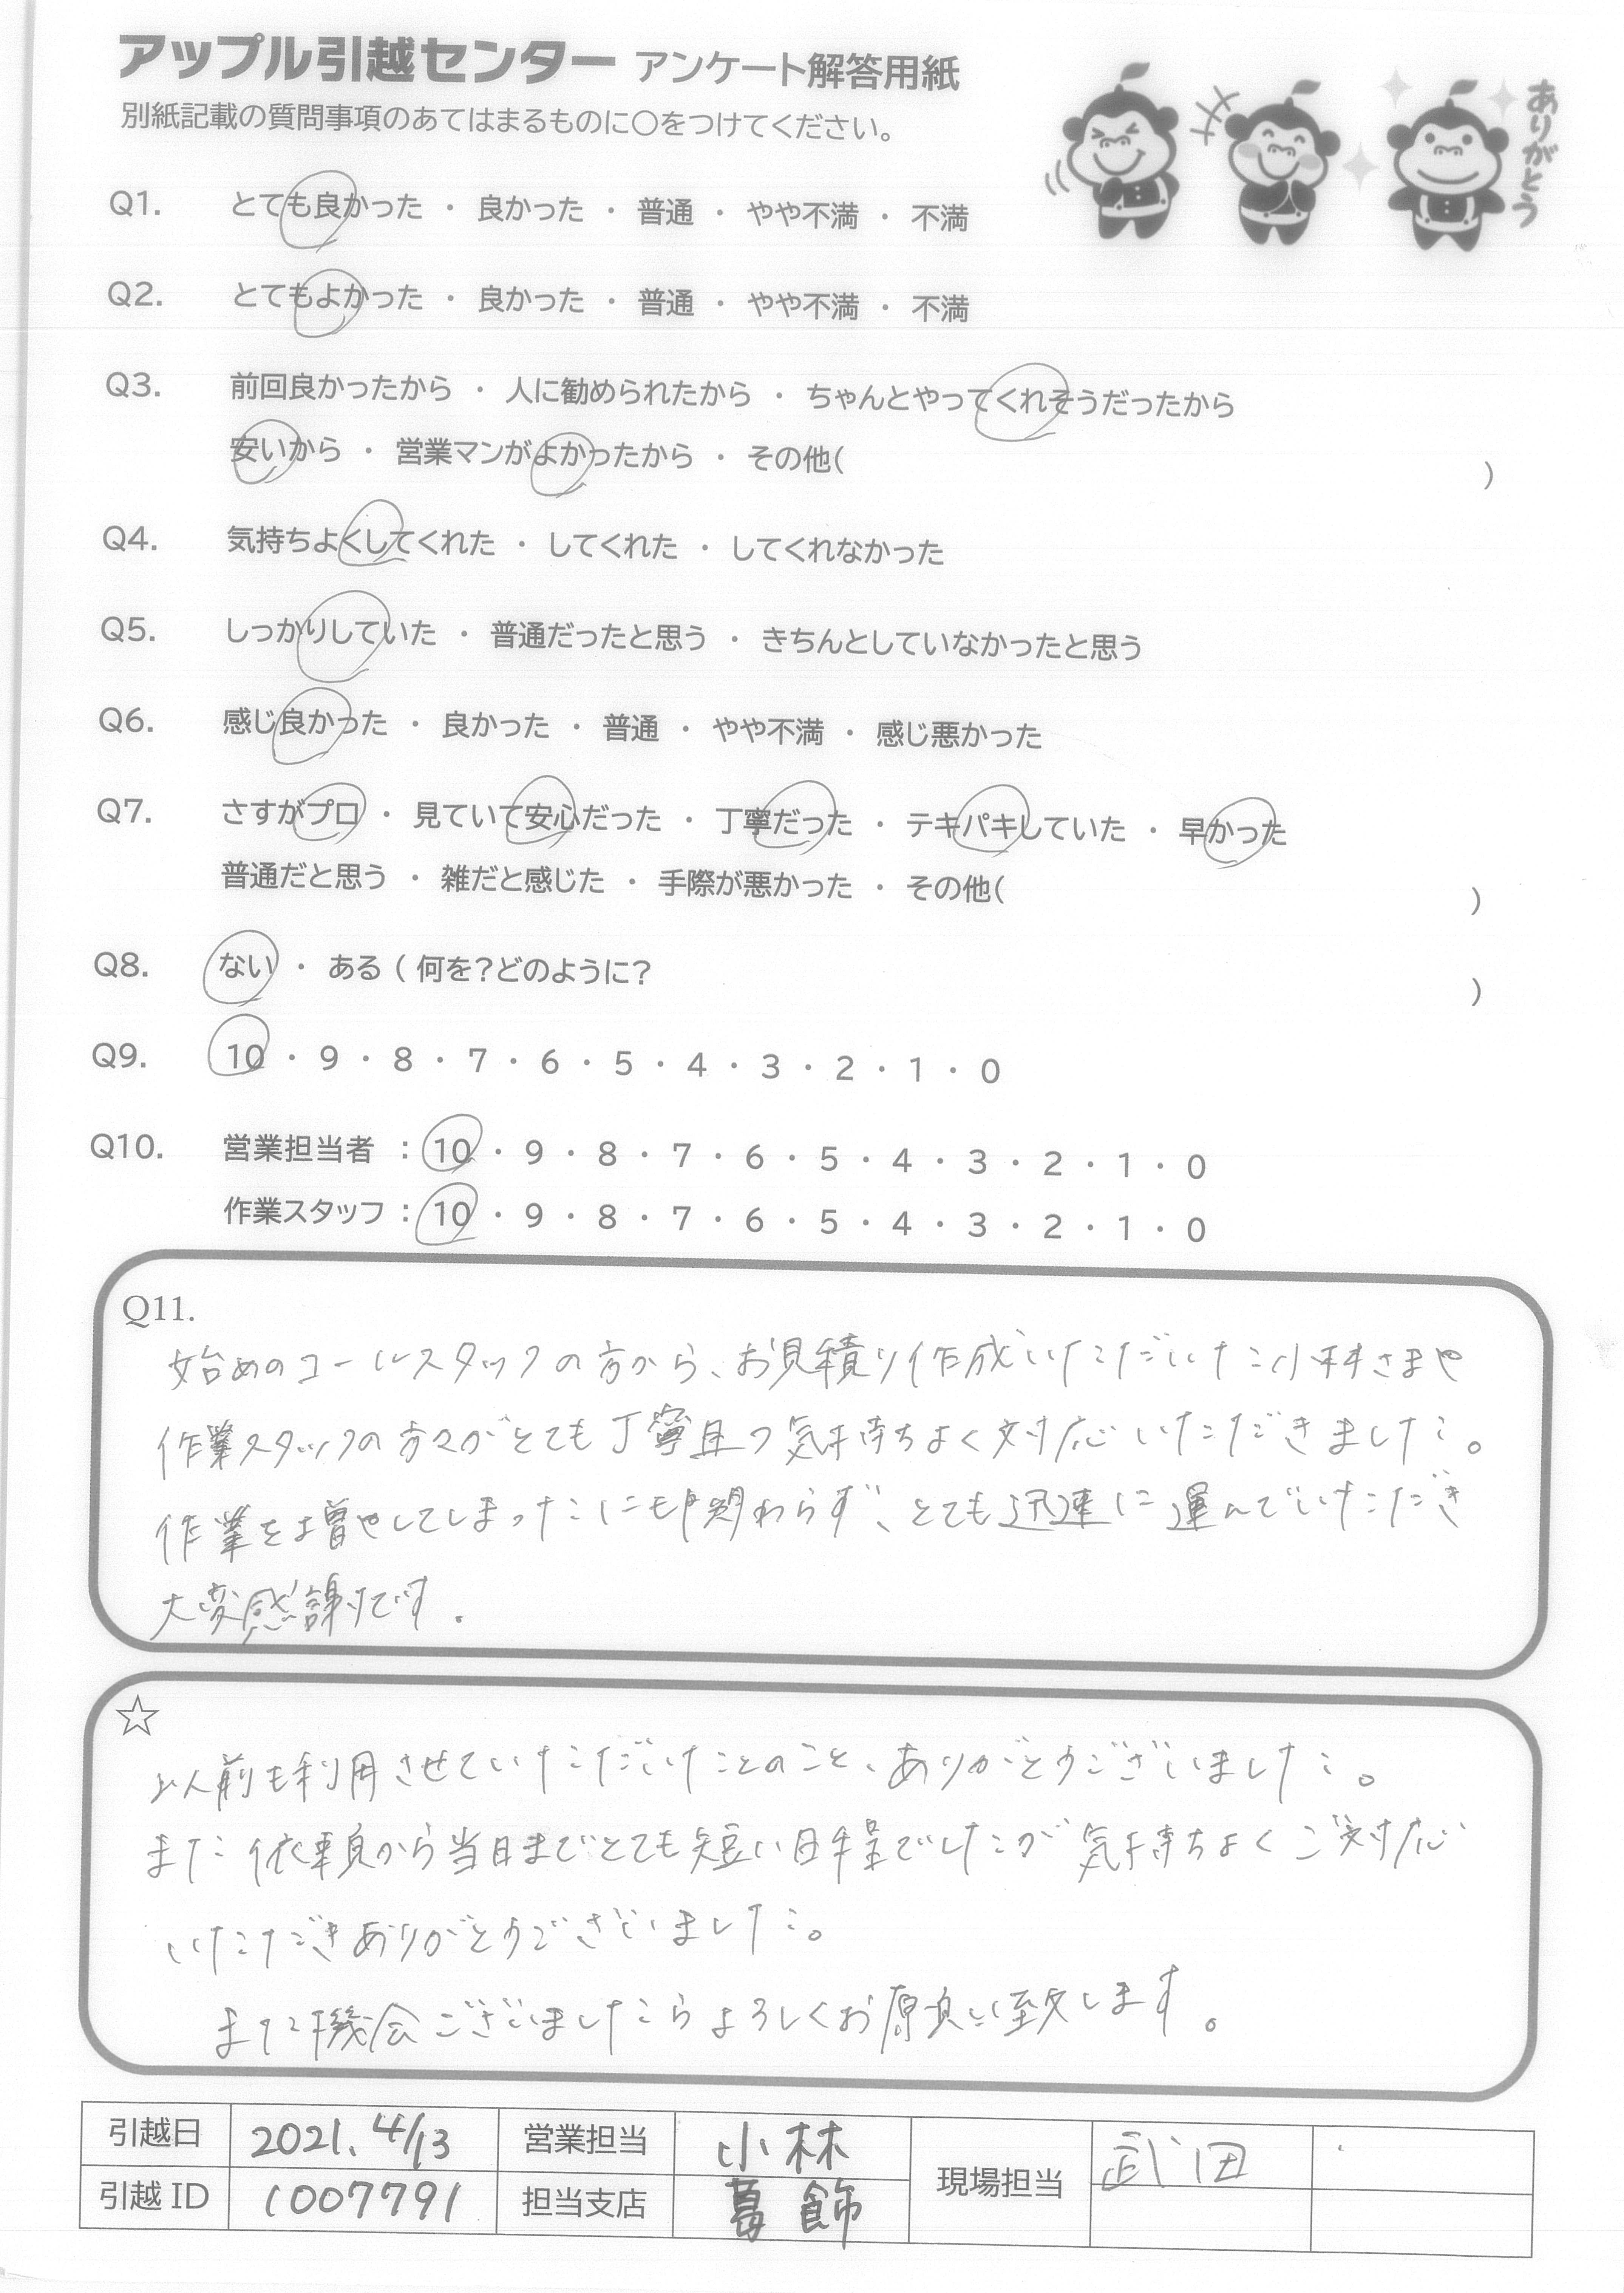 アップル引越センター アンケート解答用紙
別紙記載の質問事項のあてはまるものに○をつけてください。
ありがとう
Q1. とても良かった ・ 良かった ・ 普通 ・ やや不満 ・ 不満
Q2. とてもよかった ・ 良かった ・ 普通 ・ やや不満 ・ 不満
Q3. 前回良かったから ・ 人に勧められたから ・ ちゃんとやってくれそうだったから
安いから ・ 営業マンがよかったから ・ その他( )
Q4. 気持ちよくしてくれた ・ してくれた ・ してくれなかった
Q5. しっかりしていた ・ 普通だったと思う ・ きちんとしていなかったと思う
Q6. 感じ良かった ・ 良かった ・ 普通 ・ やや不満 ・ 感じ悪かった
Q7. さすがプロ ・ 見ていて安心だった ・ 丁寧だった ・ テキパキしていた ・ 早かった
普通だと思う ・ 雑だと感じた ・ 手際が悪かった ・ その他( )
Q8. ない ・ ある ( 何を?どのように? )
Q9. 10 ・ 9 ・ 8 ・ 7 ・ 6 ・ 5 ・ 4 ・ 3 ・ 2 ・ 1 ・ 0
Q10. 営業担当者 : 10 ・ 9 ・ 8 ・ 7 ・ 6 ・ 5 ・ 4 ・ 3 ・ 2 ・ 1 ・ 0
作業スタッフ : 10 ・ 9 ・ 8 ・ 7 ・ 6 ・ 5 ・ 4 ・ 3 ・ 2 ・ 1 ・ 0
Q11.
始めのコールスタッフの方から、お見積り作成いただいた小林さまや
作業スタッフの方々がとても丁寧且つ気持ちよく対応いただきました。
作業を増やしてしまったにも関わらず、とても迅速に運んでいただき
大変感謝です.
☆
以前も利用させていただいたことのこと、ありがとうございました。
また依頼から当日までとても短い日程でしたが気持ちよくご対応
いただきありがとうございました。
また機会ございましたらよろしくお願い致します。
引越日 2021. 4/13 営業担当 小林 現場担当 武田
引越 ID 1007791 担当支店 葛飾